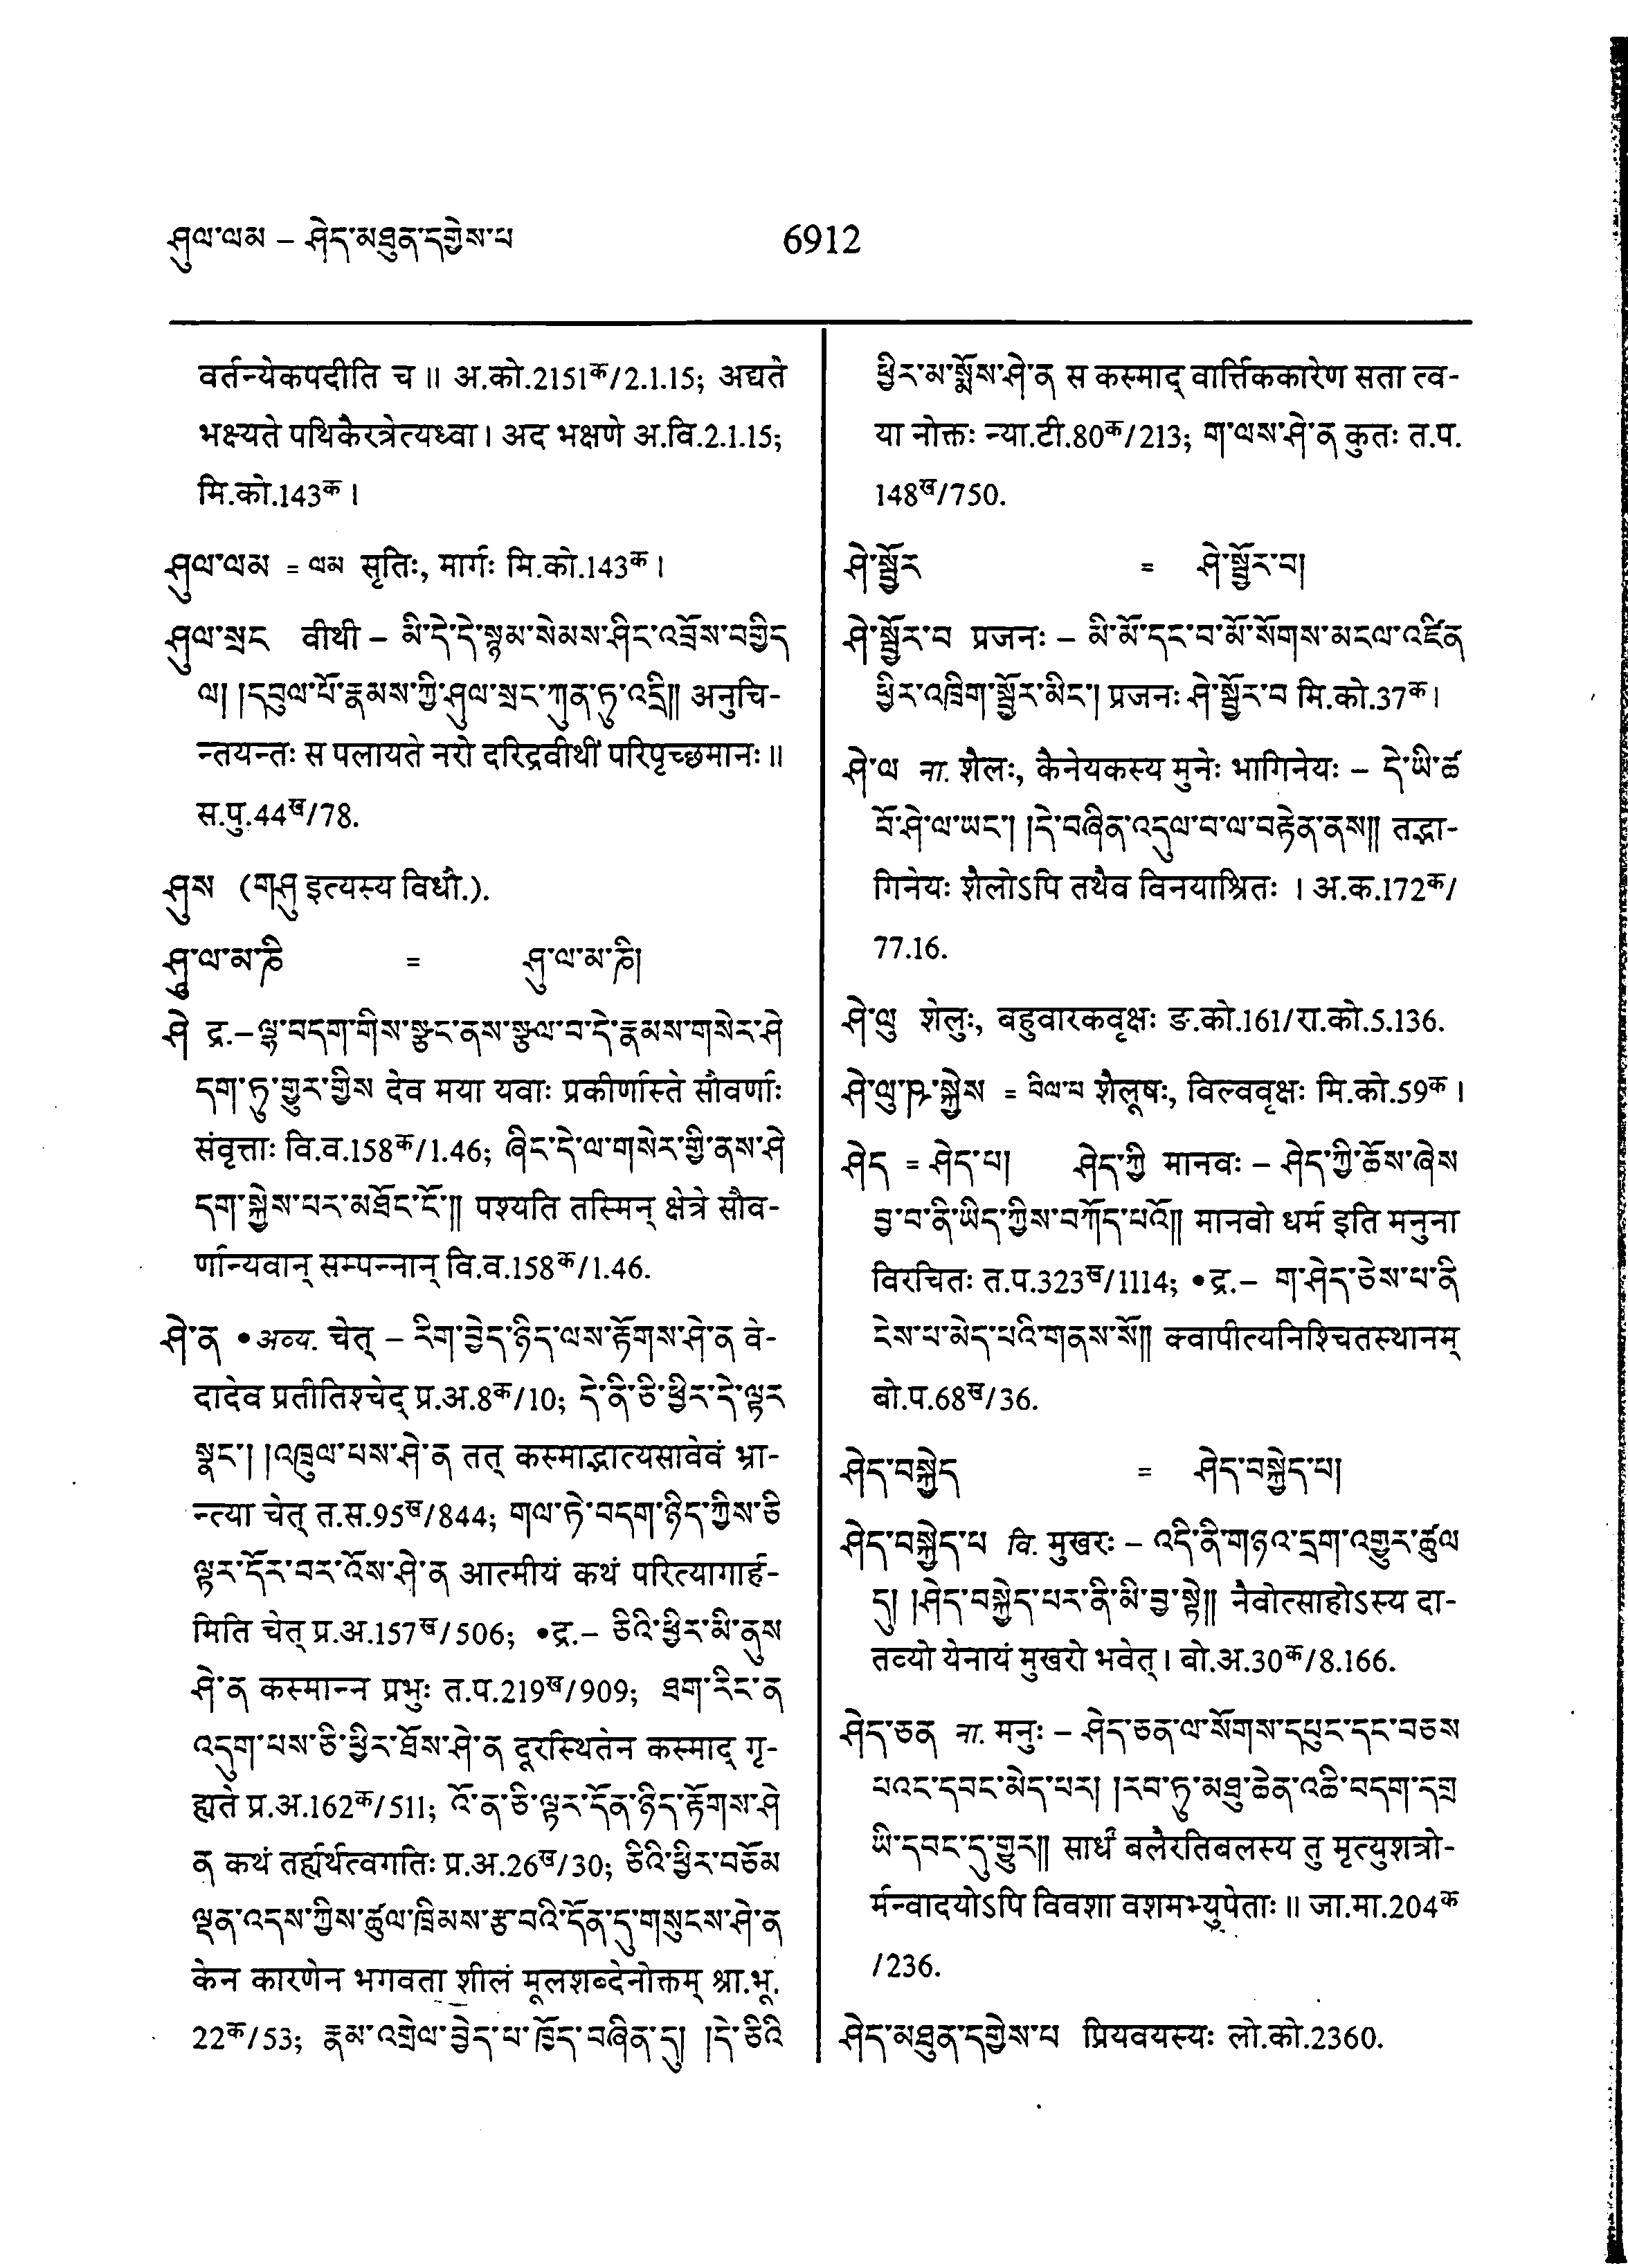 ཤུལ་ལམ – ཤེད་མཐུན་དགྱེས་པ
6912
वर्तन्येकपदीति च ॥ अ.को.2151क/2.1.15; अद्यते
भक्ष्यते पथिकैरत्रेत्यध्वा । अद भक्षणे अ.वि.2.1.15;
मि.को.143क ।
ཤུལ་ལམ = ལམ सृतिः, मार्गः मि.को.143क ।
ཤུལ་སྲང वीथी – མི་དེ་དེ་སྙམ་སེམས་ཤིང་འབྲོས་བགྱིད
ལ། །དབུལ་པོ་རྣམས་ཀྱི་ཤུལ་སྲང་ཀུན་ཏུ་འདྲི།། अनुचि-
न्तयन्तः स पलायते नरो दरिद्रवीथीं परिपृच्छमानः ॥
स.पु.44ख/78.
ཤུས (གཤུ इत्यस्य विधौ.).
ཤཱུ་ལ་མ་ཎི = ཤུ་ལ་མ་ཎི།
ཤེ द्र.– ལྷ་བདག་གིས་སྟང་ནས་སྩལ་བ་དེ་རྣམས་གསེར་ཤེ
དག་ཏུ་གྱུར་གྱིས देव मया यवाः प्रकीर्णास्ते सौवर्णाः
संवृत्ताः वि.व.158क/1.46; ཞིང་དེ་ལ་གསེར་གྱི་ནས་ཤེ
དག་སྐྱེས་པར་མཐོང་ངོ་།། पश्यति तस्मिन् क्षेत्रे सौव-
र्णान्यवान् सम्पन्नान् वि.व.158क/1.46.
ཤེ་ན • अव्य. चेत् – རིག་བྱེད་ཉིད་ལས་རྟོགས་ཤེ་ན वे-
दादेव प्रतीतिश्चेद् प्र.अ.8क/10; དེ་ནི་ཅི་ཕྱིར་དེ་ལྟར
སྣང་། །འཁྲུལ་པས་ཤེ་ན तत् कस्माद्भात्यसावेवं भ्रा-
न्त्या चेत् त.स.95ख/844; གལ་ཏེ་བདག་ཉིད་ཀྱིས་ཅི
ལྟར་དོར་བར་འོས་ཤེ་ན आत्मीयं कथं परित्यागार्ह-
मिति चेत् प्र.अ.157ख/506; •द्र.– ཅིའི་ཕྱིར་མི་ནུས
ཤེ་ན कस्मान्न प्रभुः त.प.219ख/909; ཐག་རིང་ན
འདུག་པས་ཅི་ཕྱིར་ཐོས་ཤེ་ན दूरस्थितेन कस्माद् गृ-
ह्यते प्र.अ.162क/511; འོ་ན་ཅི་ལྟར་དོན་ཉིད་རྟོགས་ཤེ
ན कथं तर्ह्यर्थत्वगतिः प्र.अ.26ख/30; ཅིའི་ཕྱིར་བཅོམ
ལྡན་འདས་ཀྱིས་ཚུལ་ཁྲིམས་རྩ་བའི་དོན་དུ་གསུངས་ཤེ་ན
केन कारणेन भगवता शीलं मूलशब्देनोक्तम् श्रा.भू.
22क/53; རྣམ་འགྲེལ་བྱེད་པ་ཁྱོད་བཞིན་དུ། །དེ་ཅིའི
ཕྱིར་མ་སྨོས་ཤེ་ན स कस्माद् वार्त्तिककारेण सता त्व-
या नोक्तः न्या.टी.80क/213; ག་ལས་ཤེ་ན कुतः त.प.
148ख/750.
ཤེ་སྦྱོར = ཤེ་སྦྱོར་བ།
ཤེ་སྦྱོར་བ प्रजनः – མི་མོ་དང་བ་མོ་སོགས་མངལ་འཛིན
ཕྱིར་འཁྲིག་སྦྱོར་མིང་། प्रजनः ཤེ་སྦྱོར་བ मि.को.37क ।
ཤེ་ལ ना. शैलः, कैनेयकस्य मुनेः भागिनेयः – དེ་ཡི་ཚ
བོ་ཤེ་ལ་ཡང་། །དེ་བཞིན་འདུལ་བ་ལ་བརྟེན་ནས།། तद्भा-
गिनेयः शैलोऽपि तथैव विनयाश्रितः । अ.क.172क/
77.16.
ཤེ་ལུ शेलुः, बहुवारकवृक्षः ङ.को.161/रा.को.5.136.
ཤེ་ལུ་ཥ་སྐྱེས = བིལ་པ शैलूषः, विल्ववृक्षः मि.को.59क ।
ཤེད = ཤེད་པ། ཤེད་ཀྱི मानवः – ཤེད་ཀྱི་ཆོས་ཞེས
བྱ་བ་ནི་ཡིད་ཀྱིས་བཀོད་པའོ།། मानवो धर्म इति मनुना
विरचितः त.प.323ख/1114; •द्र.– ག་ཤེད་ཅེས་པ་ནི
ངེས་པ་མེད་པའི་གནས་སོ།། क्वापीत्यनिश्चितस्थानम्
बो.प.68ख/36.
ཤེད་བསྐྱེད = ཤེད་བསྐྱེད་པ།
ཤེད་བསྐྱེད་པ वि. मुखरः – འདི་ནི་གཉའ་དྲག་འགྱུར་ཚུལ
དུ། །ཤེད་བསྐྱེད་པར་ནི་མི་བྱ་སྟེ།། नैवोत्साहोऽस्य दा-
तव्यो येनायं मुखरो भवेत् । बो.अ.30क/8.166.
ཤེད་ཅན ना. मनुः – ཤེད་ཅན་ལ་སོགས་དཔུང་དང་བཅས
པའང་དབང་མེད་པར། །རབ་ཏུ་མཐུ་ཆེན་འཆི་བདག་དགྲ
ཡི་དབང་དུ་གྱུར།། सार्धं बलैरतिबलस्य तु मृत्युशत्रो-
र्मन्वादयोऽपि विवशा वशमभ्युपेताः ॥ जा.मा.204क
/236.
ཤེད་མཐུན་དགྱེས་པ प्रियवयस्यः लो.को.2360.